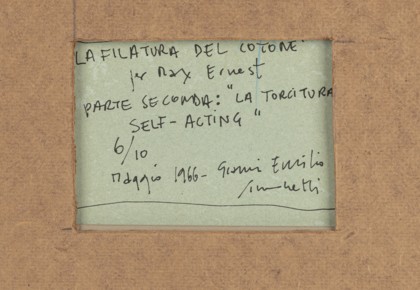 LA FILATURA DEL COTONE.
per Max Ernest
PARTE SECONDA: "LA TORCITURA
SELF-ACTING"
6/10
Maggio 1966 - Gianni Emilio
Simonetti